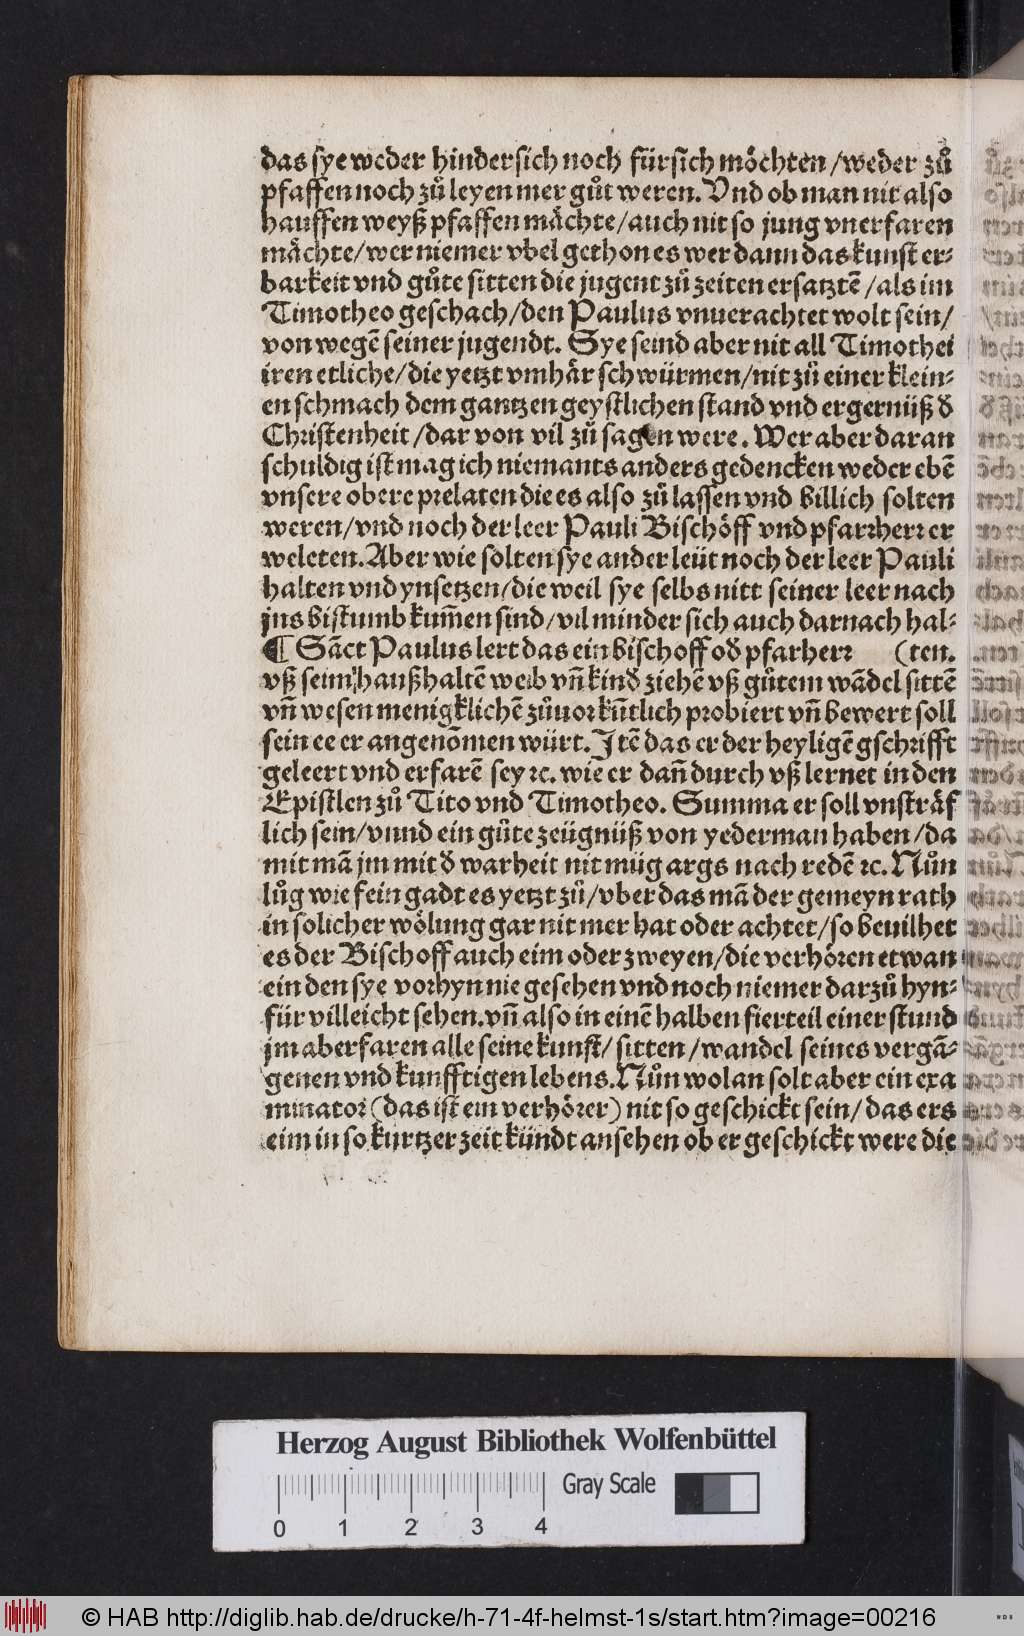 das sye weder hindersich noch fürsich möchten / weder zů
pfaffen noch zů leyen mer gůt weren. Vnd ob man nit also
hauffen weyß pfaffen mächte / auch nit so jung vnerfaren
mächte / wer niemer vbel gethon es wer dann das kunst er⸗
barkeit vnd gůte sitten die jugent zů zeiten ersatztē / als im
Timotheo geschach / den Paulus vnuerachtet wolt sein /
von wegē seiner jugendt. Sye seind aber nit all Timothei
iren etliche / die yetzt vmhär schwürmen / nit zů einer klein⸗
en schmach dem gantzen geystlichen stand vnd ergernüß d̕
Christenheit / dar von vil zů sagen were. Wer aber daran
schuldig ist mag ich niemants anders gedencken weder ebē
vnsere obere prelaten die es also zů lassen vnd billich solten
weren / vnd noch der leer Pauli Bischöff vnd pfarꝛherꝛ er
weleten. Aber wie solten sye ander leüt noch der leer Pauli
halten vnd ynsetzen / die weil sye selbs nitt seiner leer nach
jns bistumb kum̄en sind / vil minder sich auch darnach hal⸗
¶ Sāct Paulus lert das ein bischoff od̕ pfarherꝛ (ten.
vß seim haußhaltē weib vn̄ kind ziehē vß gůtem wādel sittē
vn̄ wesen menigklichē zůuor kūtlich probiert vn̄ bewert soll
sein ee er angenōmen würt. Itē das er der heyligē gschrifft
geleert vnd erfarē sey ꝛc. wie er dan̄ durch vß lernet in den
Epistlen zů Tito vnd Timotheo. Summa er soll vnsträf
lich sein / vnnd ein gůte zeügnüß von yederman haben / da
mit mā jm mit d̕ warheit nit müg args nach redē ꝛc. Nůn
lůg wie fein gadt es yetzt zů / vber das mā der gemeyn rath
in solicher wölung gar nit mer hat oder achtet / so beuilhet
es der Bischoff auch eim oder zweyen / die verhören etwan
ein den sye vorhyn nie gesehen vnd noch niemer darzů hyn⸗
für villeicht sehen. vn̄ also in einē halben fierteil einer stund
jm aberfaren alle seine kunst / sitten / wandel seines vergā⸗
genen vnd kunfftigen lebens. Nůn wolan solt aber ein exa
minator (das ist ein verhörer) nit so geschickt sein / das ers
eim in so kurtzer zeit kündt ansehen ob er geschickt were die
Herzog August Bibliothek Wolfenbüttel
Gray Scale
0 1 2 3 4
© HAB http://diglib.hab.de/drucke/h-71-4f-helmst-1s/start.htm?image=00216